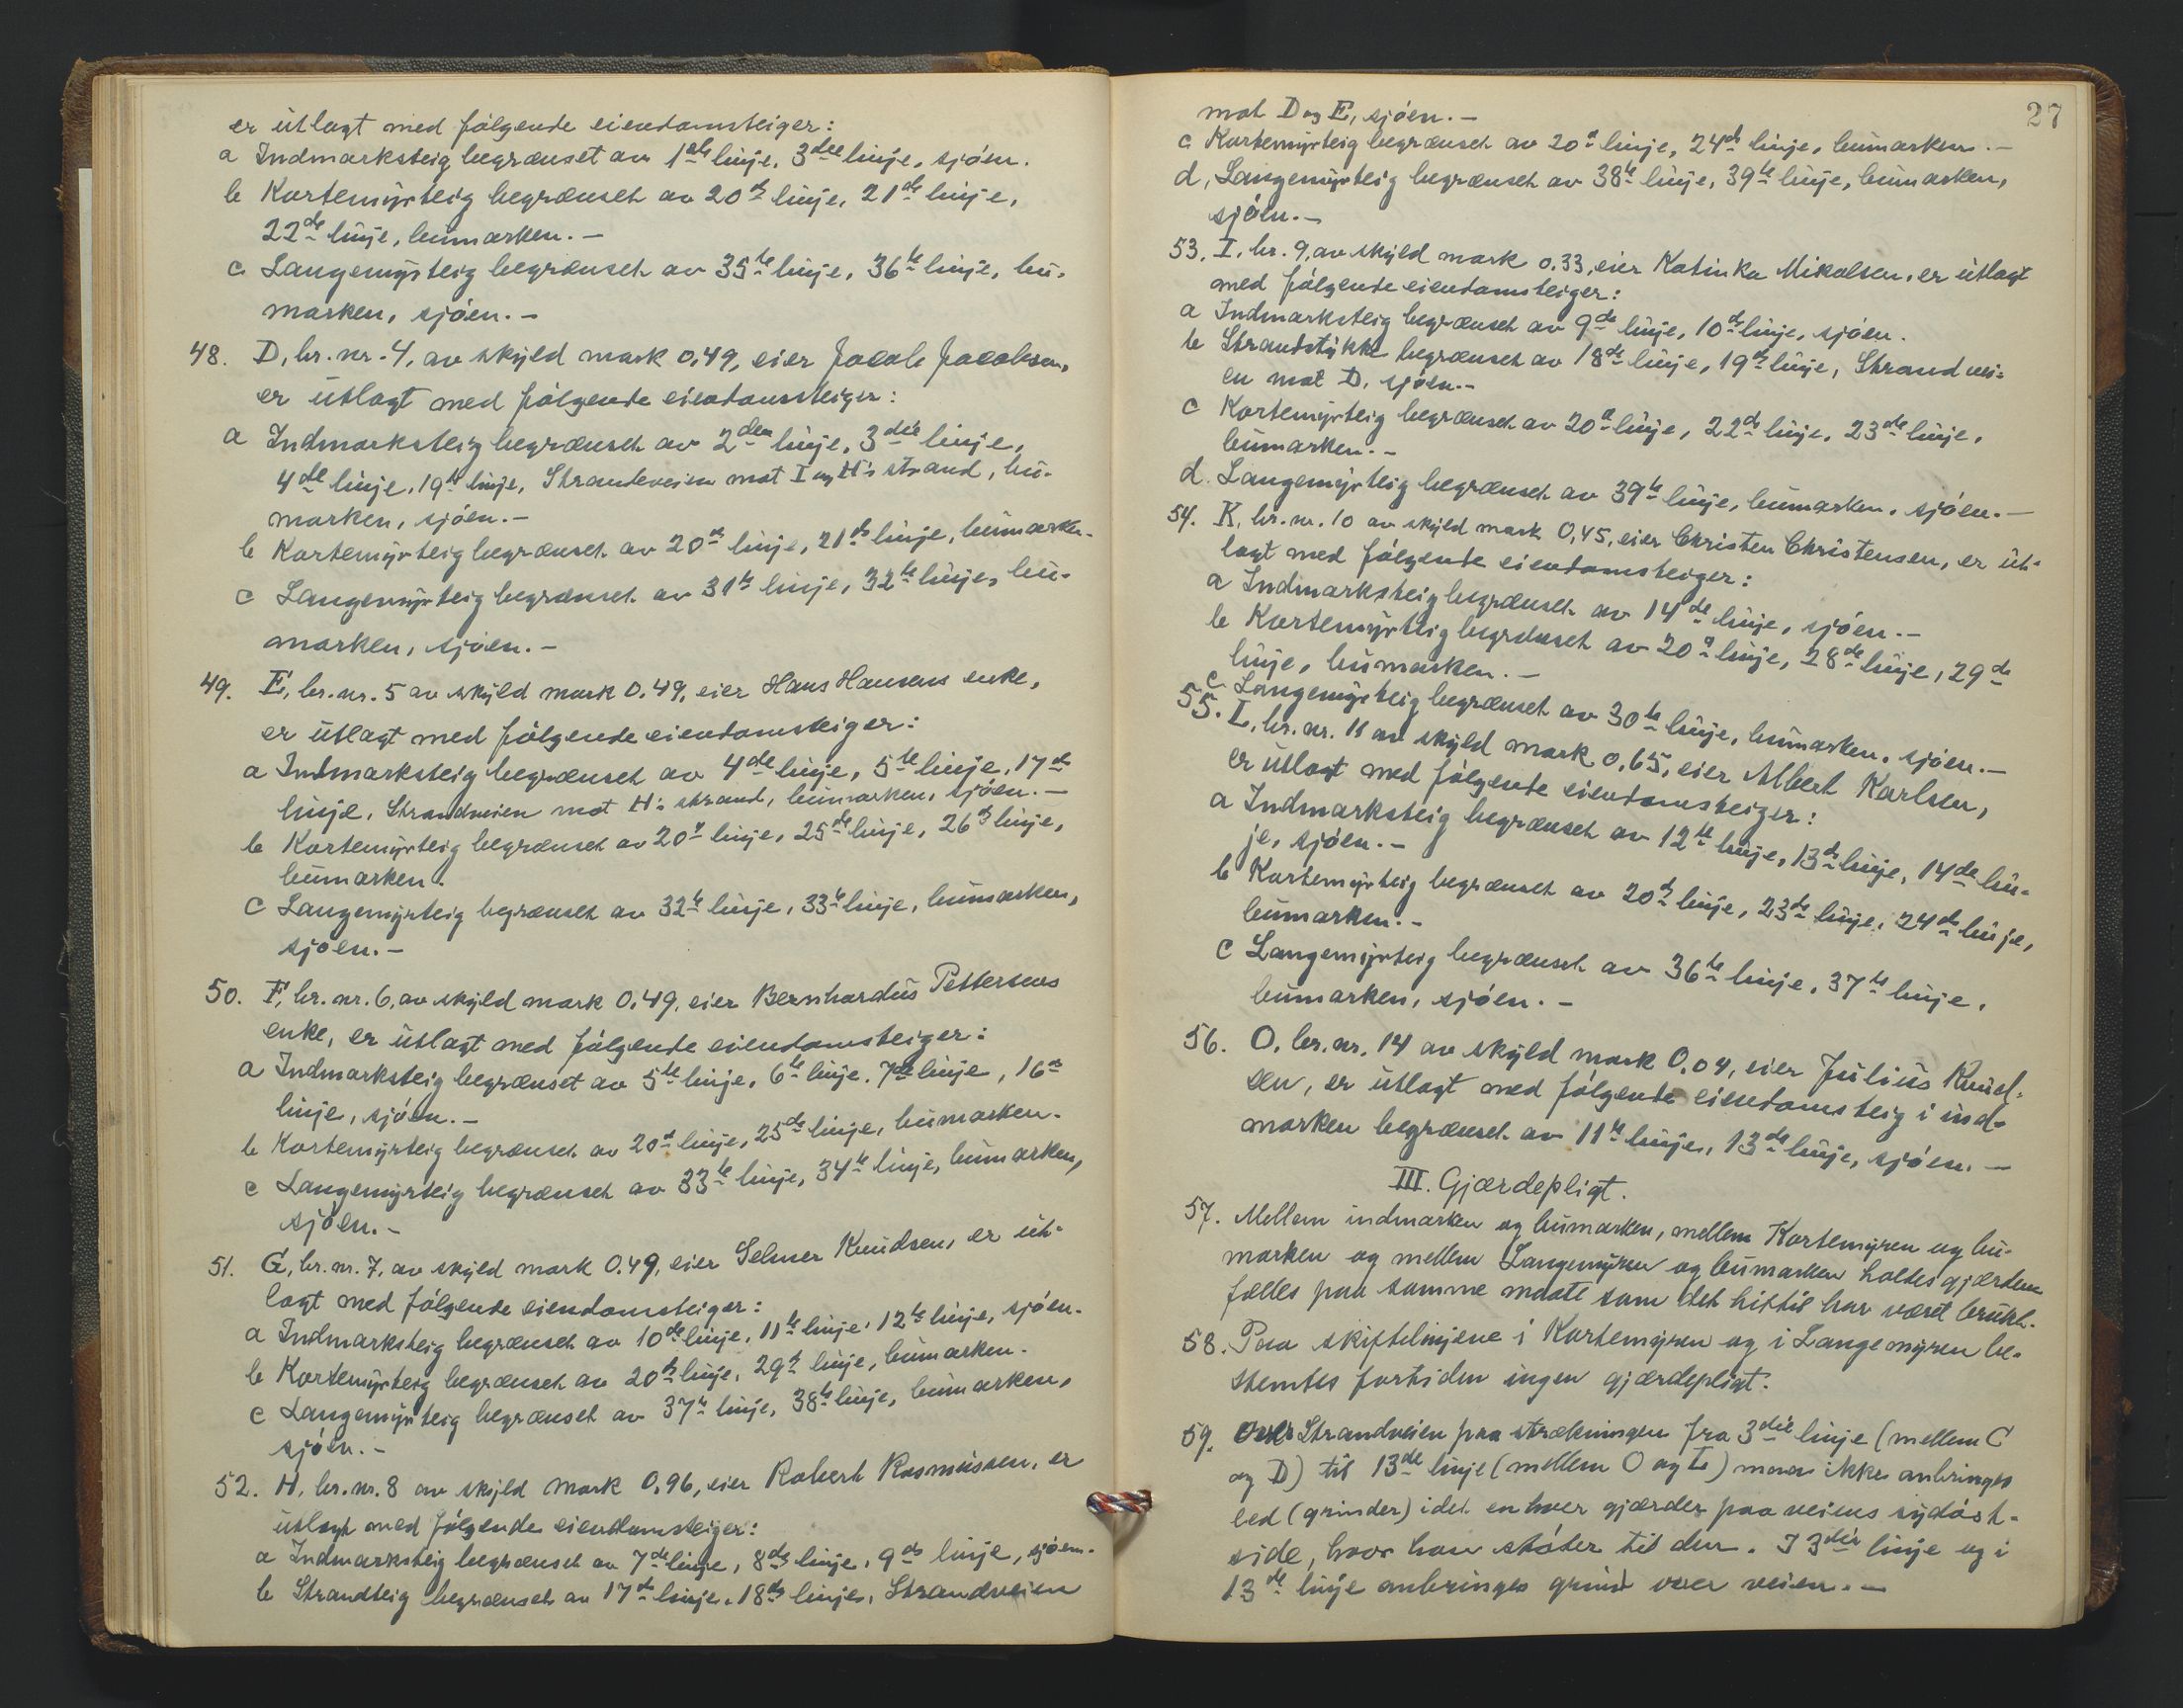 er utlagt med følgende eiendomsteiger:
a Indmarksteig begrænset av 1ste linje, 3die linje, sjøen.
b Kortemyrteig begrænset av 20de linje, 21de linje,
22de linje, bumarken.-
c Langemyrteig begrænset av 35te linje, 36te linje, bu-
marken, sjøen.-
48. D, br. nr. 4, av skyld mark 0,49, eier Jacob Jacobsen,
er utlagt med følgende eiendomsteiger:
a Indmarksteig begrænset av 2den linje, 3die linje,
4de linje, 19de linje, Strandveien mot I og H's strand, bu-
marken, sjøen.-
b Kortemyrteig begrænset av 20de linje, 21de linje, bumarken.
c Langemyrteig begrænset av 31te linje, 32te linje, bu-
marken, sjøen.-
49. E, br. nr. 5 av skyld mark 0,49, eier Hans Hansens enke,
er utlagt med følgende eiendomsteiger:
a Indmarksteig begrænset av 4de linje, 5te linje, 17de
linje, Strandveien mot H's strand, bumarken, sjøen.-
b Kortemyrteig begrænset av 20de linje, 25de linje, 26de linje,
bumarken.
c Langemyrteig begrænset av 32te linje, 33te linje, bumarken,
sjøen.-
50. F, br. nr. 6, av skyld mark 0,49, eier Bernhardus Pettersens
enke, er utlagt med følgende eiendomsteiger:
a Indmarksteig begrænset av 5te linje, 6te linje, 7de linje, 16de
linje, sjøen.-
b Kortemyrteig begrænset av 20de linje, 25de linje, bumarken.
c Langemyrteig begrænset av 33te linje, 34te linje, bumarken,
sjøen.-
51. G, br. nr. 7, av skyld mark 0,49, eier Selmer Knudsen, er ut-
lagt med følgende eiendomsteiger:
a Indmarksteig begrænset av 10de linje, 11te linje, 12te linje, sjøen.
b Kortemyrteig begrænset av 20de linje, 29de linje, bumarken.
c Langemyrteig begrænset av 37te linje, 38te linje, bumarken,
sjøen.-
52. H, br. nr. 8 av skyld mark 0,96, eier Robert Rasmussen, er
utlagt med følgende eiendomsteiger:
a Indmarksteig begrænset av 7de linje, 8de linje, 9de linje, sjøen.
b Strandteig begrænset av 17de linje, 18de linje, Strandveien
27
mot D og E, sjøen.-
c Kortemyrteig begrænset av 20de linje, 24de linje, bumarken.-
d, Langemyrteig begrænset av 38te linje, 39te linje, bumarken,
sjøen.-
53. I, br. 9, av skyld mark 0.33, eier Katinka Mikalsen, er utlagt
med følgende eiendomsteiger:
a Indmarksteig begrænset av 9de linje, 10de linje, sjøen.
b Strandstykke begrænset av 18de linje, 19de linje, Strandvei-
en mot D, sjøen.-
c Kortemyrteig begrænset av 20de linje, 22de linje, 23de linje,
bumarken.-
d. Langemyrteig begrænset av 39te linje, bumarken, sjøen.-
54. K, br. nr. 10 av skyld mark 0,45, eier Christen Christensen, er ut-
lagt med følgende eiendomsteiger:
a Indmarksteig begrænset av 14de linje, sjøen.-
b Kortemyrteig begrænset av 20de linje, 28de linje, 29de
linje, bumarken.-
c Langemyrteig begrænset av 30te linje, bumarken, sjøen.-
55. L, br. nr. 11 av skyld mark 0,65, eier Albert Karlsen,
er utlagt med følgende eiendomsteiger:
a Indmarksteig begrænset av 12te linje, 13de linje, 14de lin-
je, sjøen.-
b Kortemyrteig begrænset av 20de linje, 23de linje, 24de linje,
bumarken.-
c Langemyrteig begrænset av 36te linje, 37te linje,
bumarken, sjøen.-
56. O, br. nr. 14 av skyld mark 0,04, eier Julius Knud-
sen, er utlagt med følgende eiendomsteig i ind-
marken begrænset av 11te linje, 13de linje, sjøen.-
III. Gjærdepligt.
57. Mellem indmarken og bumarken, mellem Kortemyren og bu-
marken og mellem Langemyren og bumarken holdes gjærdene
fælles paa samme maate som det hittil har været brukt.
58. Paa skiftelinjene i Kortemyren og i Langemyren be-
stemtes fortiden ingen gjærdepligt.
59. Over Strandveien paa strækningen fra 3die linje (mellem C
og D) til 13de linje (mellem O og L) maa ikke anbringes
led (grinder) idet enhver gjærder paa veiens sydøst-
side, hvor han støter til den. I 3die linje og i
13de linje anbringes grind over veien.-